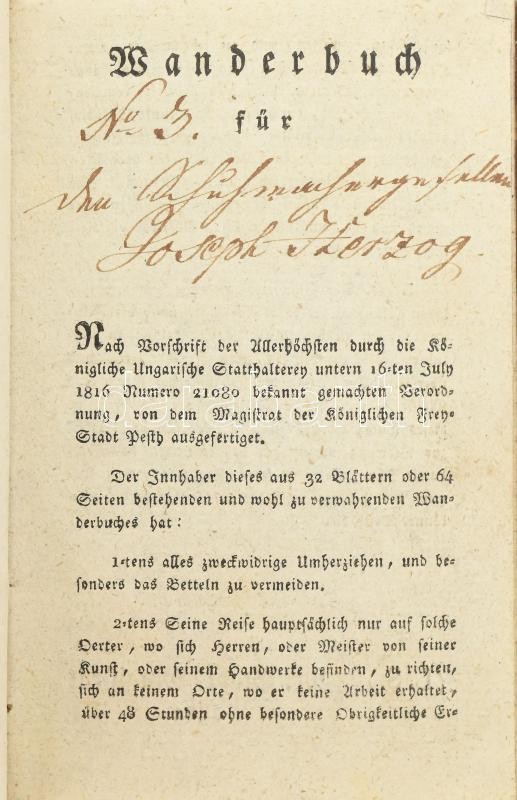 Wanderbuch
No 3. für
den Schuhmachergesellen
Joseph Herzog.
Nach Vorschrift der Allerhöchsten durch die Kö-
nigliche Ungarische Statthalterey untern 16-ten July
1816 Numero 21080 bekannt gemachten Verord-
nung, von dem Magistrat der Königlichen Frey-
Stadt Pesth ausgefertiget.
Der Innhaber dieses aus 32 Blättern oder 64
Seiten bestehenden und wohl zu verwahrenden Wan-
derbuches hat:
1-tens alles zweckwidrige Umherziehen, und be-
sonders das Betteln zu vermeiden.
2-tens Seine Reise hauptsächlich nur auf solche
Oerter, wo sich Herren, oder Meister von seiner
Kunst, oder seinem Handwerke befinden, zu richten,
sich an keinem Orte, wo er keine Arbeit erhaltet,
über 48 Stunden ohne besondere Obrigkeitliche Er-